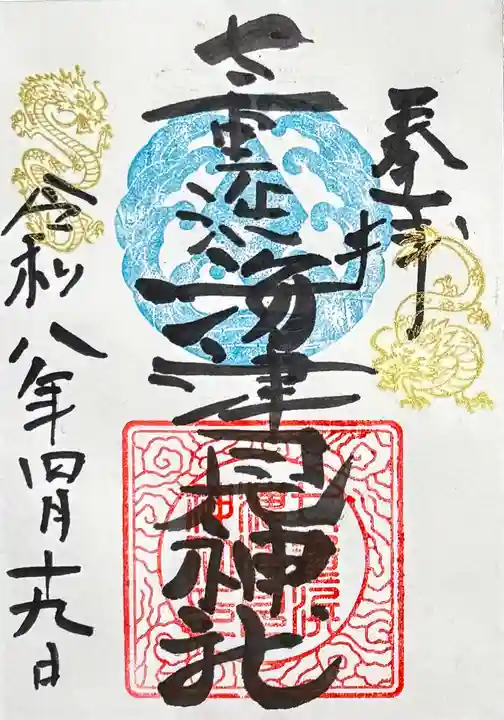 奉拝
七重浜海津見神社
令和八年四月十九日